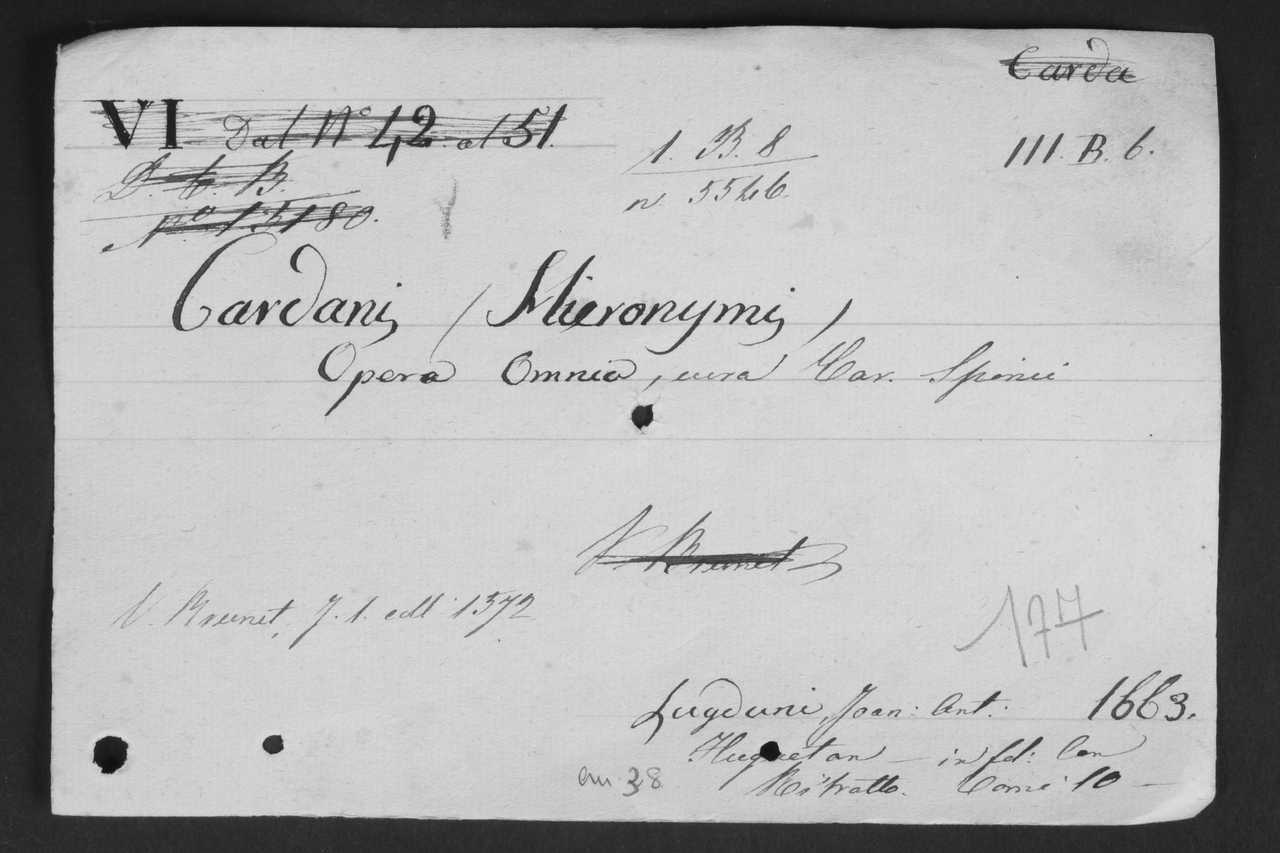 Carda
VI Dal N° 42 al 51.
1. B. 8
III. B. 6.
D. 6. B.
n. 5546.
N.° 15180.
Cardani, (Hieronymi,)
Opera Omnia, cura Car. Sponii
V. Brunet
V. Brunet, T. 1. coll: 1572
177
Lugduni, Joan: Ant: 1663.
Huguetan — in fol: Con
Ritratto. Tomi 10 —
cm. 38